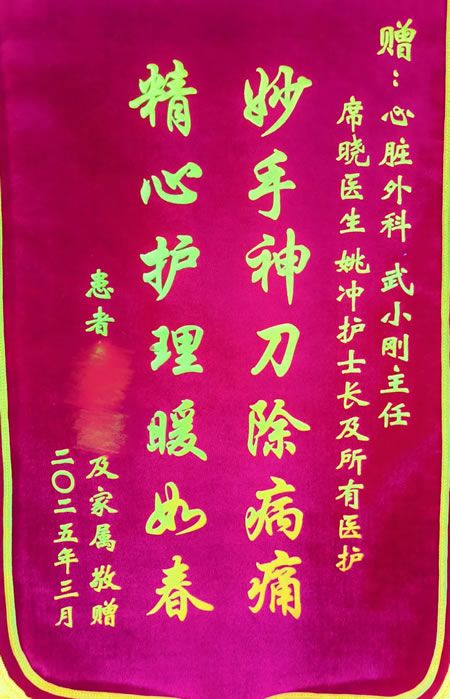 赠：心脏外科 武小刚主任
席晓医生 姚冲护士长及所有医护
妙手神刀除病痛
精心护理暖如春
患者 及家属 敬赠
二〇二五年三月